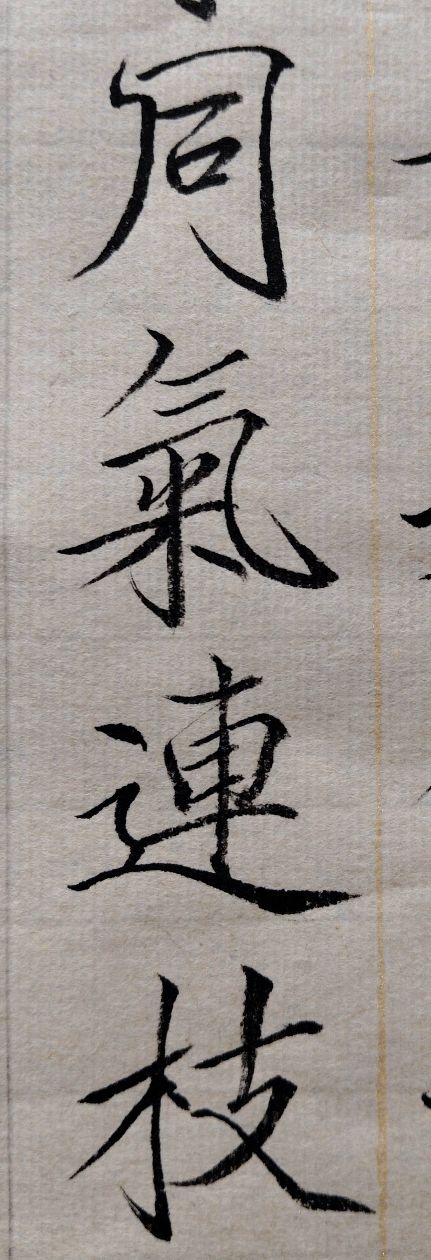 同氣連枝